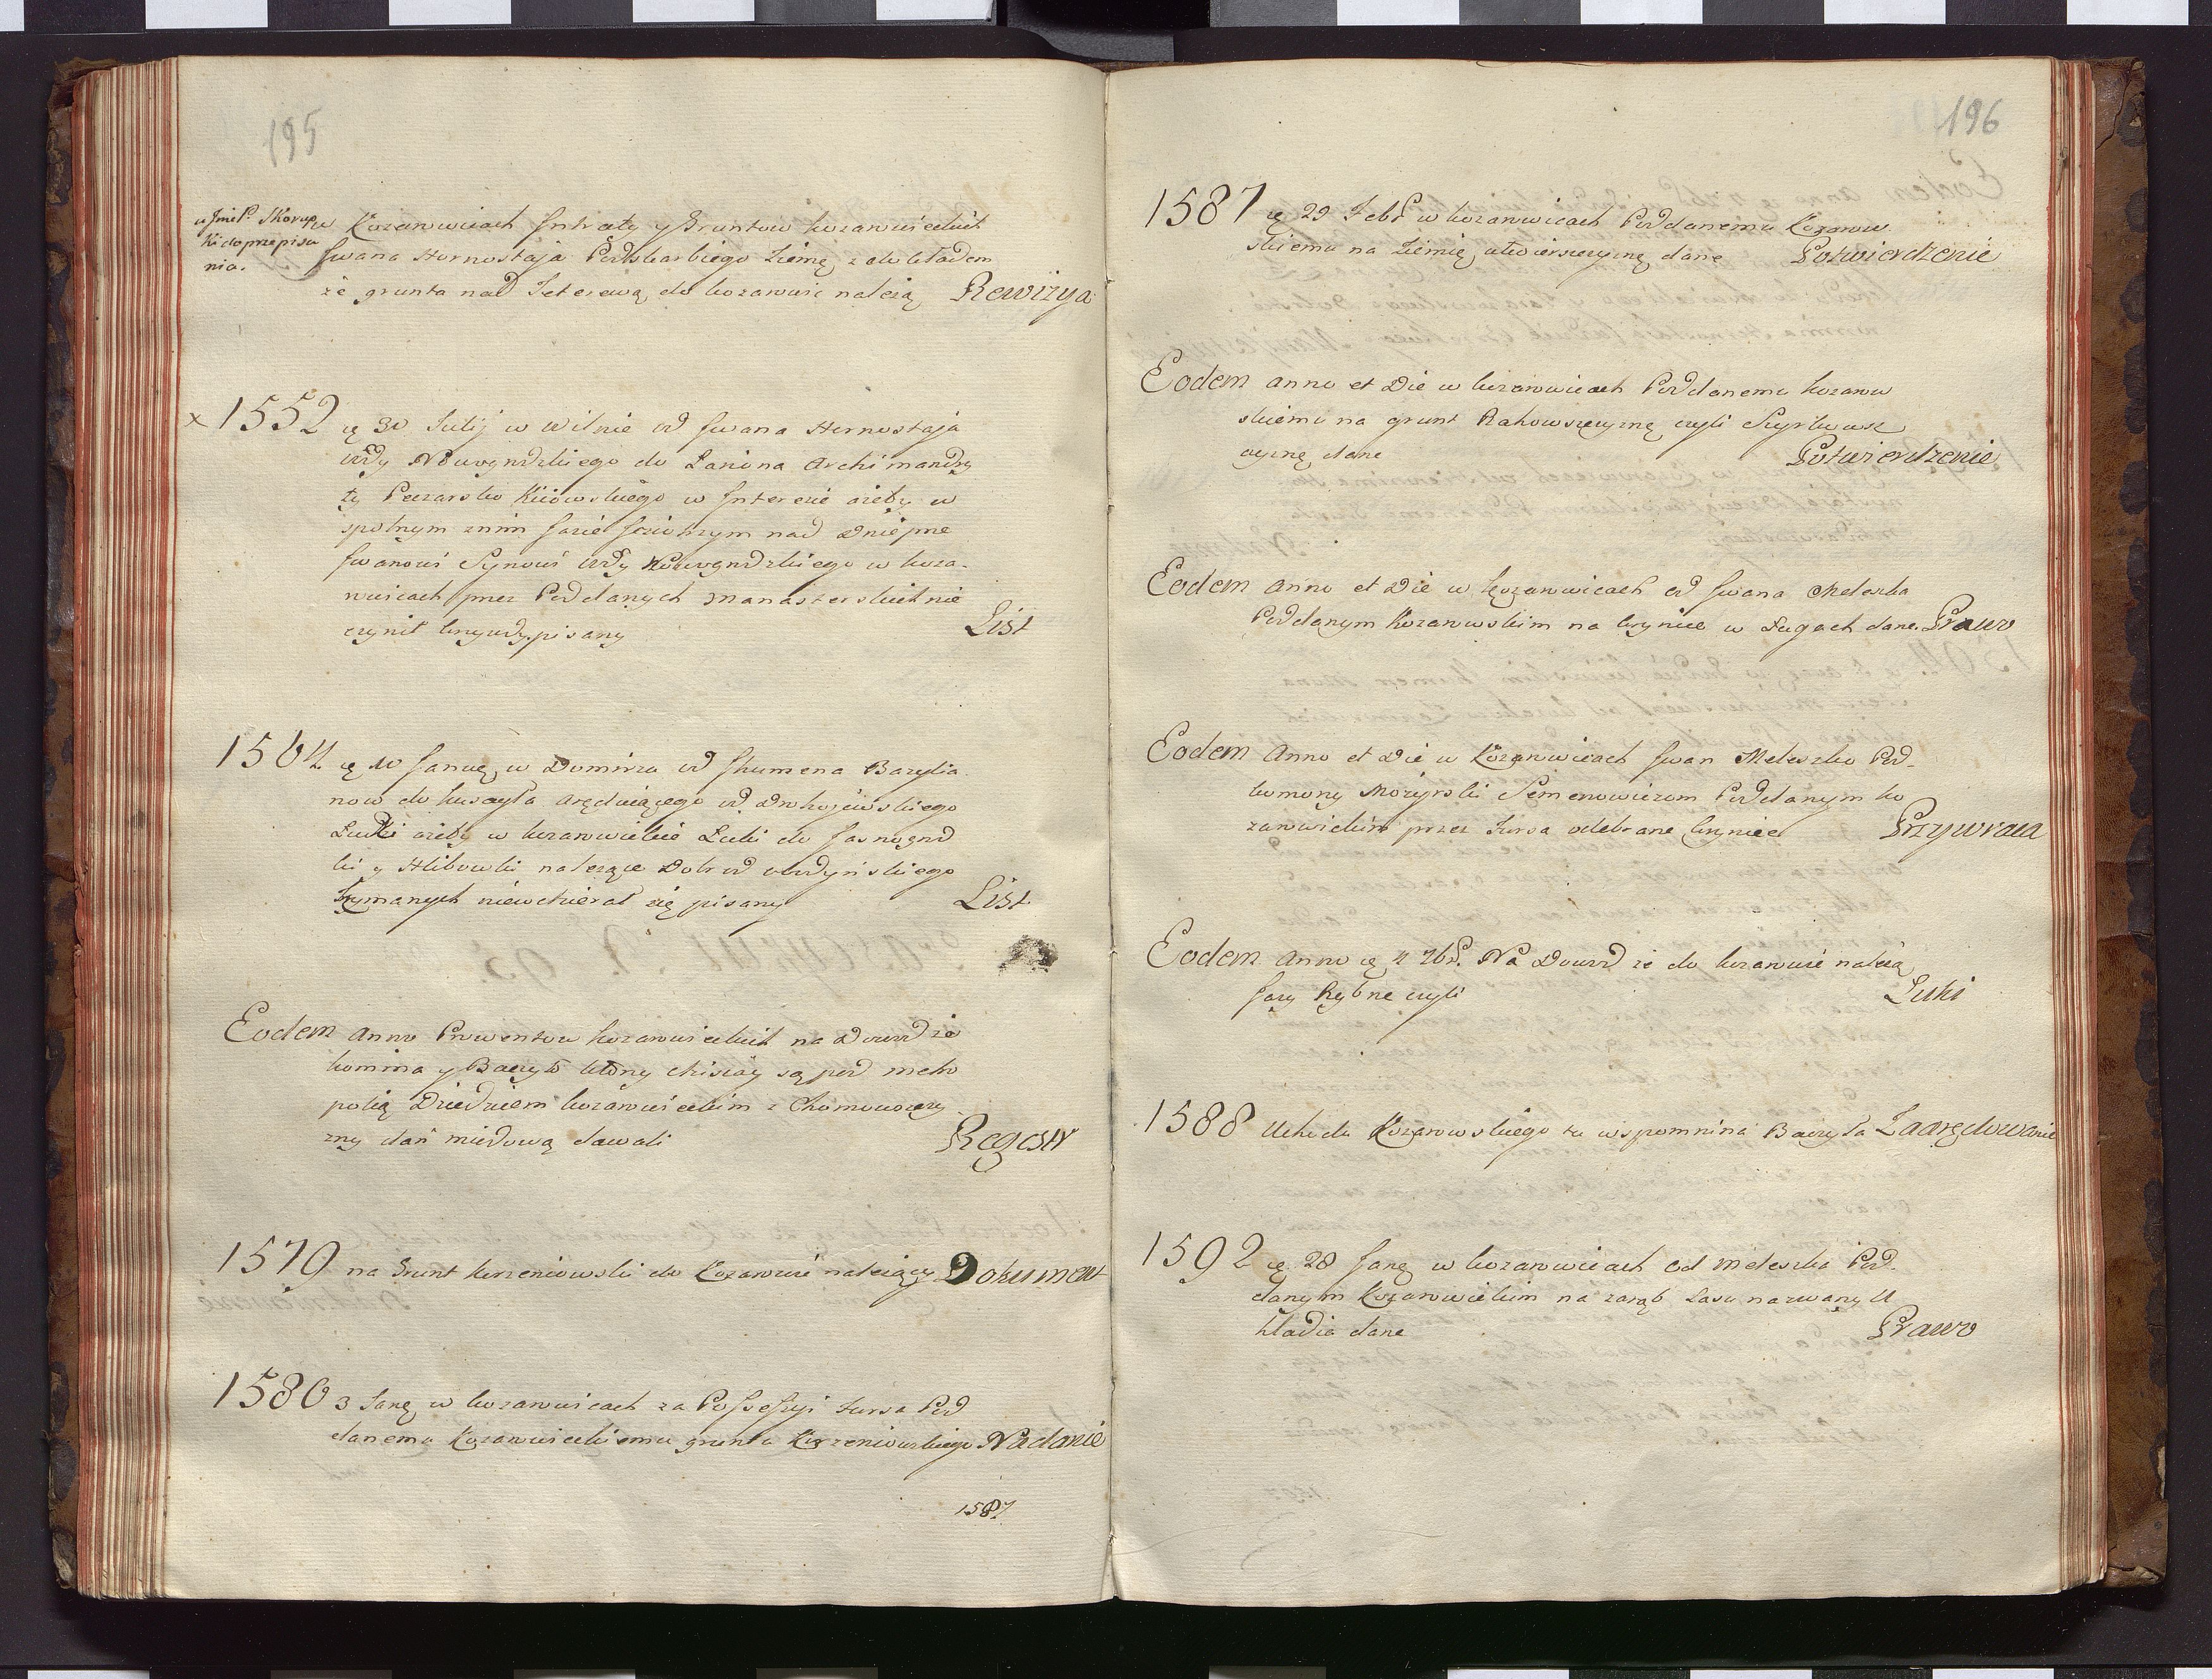 195
u JmcP. Skorup
ki do przepisa
nia.
w Kozarowicach Intraty y Gruntow kozarowickich
Jwana Hornostaja Podskarbiego Ziemę z dokładem
że grunta nad Teterewą do kozarowic należą Rewizya
x 1552 ię 30 Julij w Wilnie od Jwana Hornostaja
wdy Nowogrodzkiego do Archimandry
ty Peczarsko Kijowskiego w Interesie ażeby w
spolnym znim Jazie nad Dniepre
Jwanowi Synowi wdy Nowogrodzkiego w koza-
rowicach przez Poddanych Manasterskich nie
czynił krzywdy pisany List
1564 ię 10 Januę w Domirza od Jhumena Bazylia
now do kuszczyła arędującego od Drohojowskiego
Ludki ażeby w kozarowickie Luki do Jasnogrod
ki y Hlibowki należące Dobr od
trzymanych niewdzierał się pisany List
Eodem Anno Prowentow kozarowickich na Dowod że
komina y Baczyło ktorzy dzisiay są pod metro
polią Dziedzicem kozarowickim z Chomowszczy
zny dań miodową dawali Regestr
1579 na Grunt korzeniowski do Kozarowic należący Dokument
1580 3 Janę w kozarowicach za Possessyi Tursa Pod
danemu Kozarowickiemu gruntu Korzeniowskiego Nadanie
1587
196
1587 ię 29 Febr w kozarowicach Poddanemu Kozarow
skiemu na Ziemię dane Potwierdzenie
Eodem anno et Die w kozarowicach Poddanemu kozarow
skiemu na grunt Rahowszczyznę czyli
czyznę dane Potwierdzenie
Eodem Anno et Die w kozarowicach od Jwana Meleszka
Poddanym Kozarowskim na krynice w Ługach dane Prawo
Eodem Anno et Die w Kozarowicach Jwan Meleszko Pod-
komorzy Mozyrski Semenowiczom Poddanym ko
zarowickim przez Tursa odebrane krynice Przywraca
Eodem anno ię 4 Xbr. Na Dowod że do kozarowic należą
Jazy Rybne czyli Luki
1588 Uchoda Kozarowskiego tu wspomnina Baczyła Zaarędowanie
1592 ię 28 Janę w kozarowicach od Meleszki Pod-
danym Kozarowickim na zarąb Lasu nazwany U
hladia dane Prawo